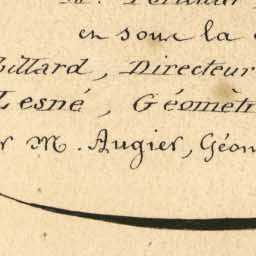 en sous la
illard, Directeur
Lesné, Géomèt
r M. Augier, Géom